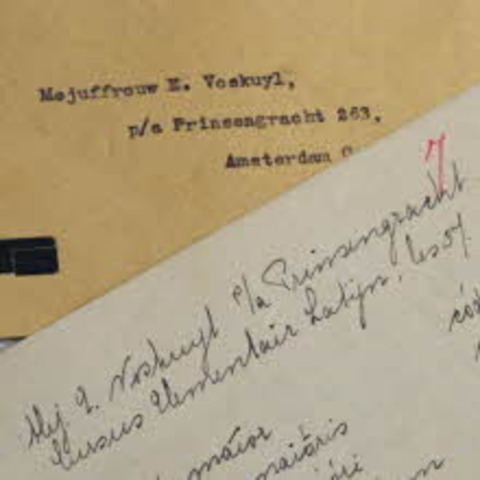 Mejuffrouw E. Voskuyl,
p/a Prinsengracht 263,
Amsterdam C
7
Mej. E. Voskuyl p/a Prinsengracht
Cursus Elementair Latijn, les 57.
maior
maiáris